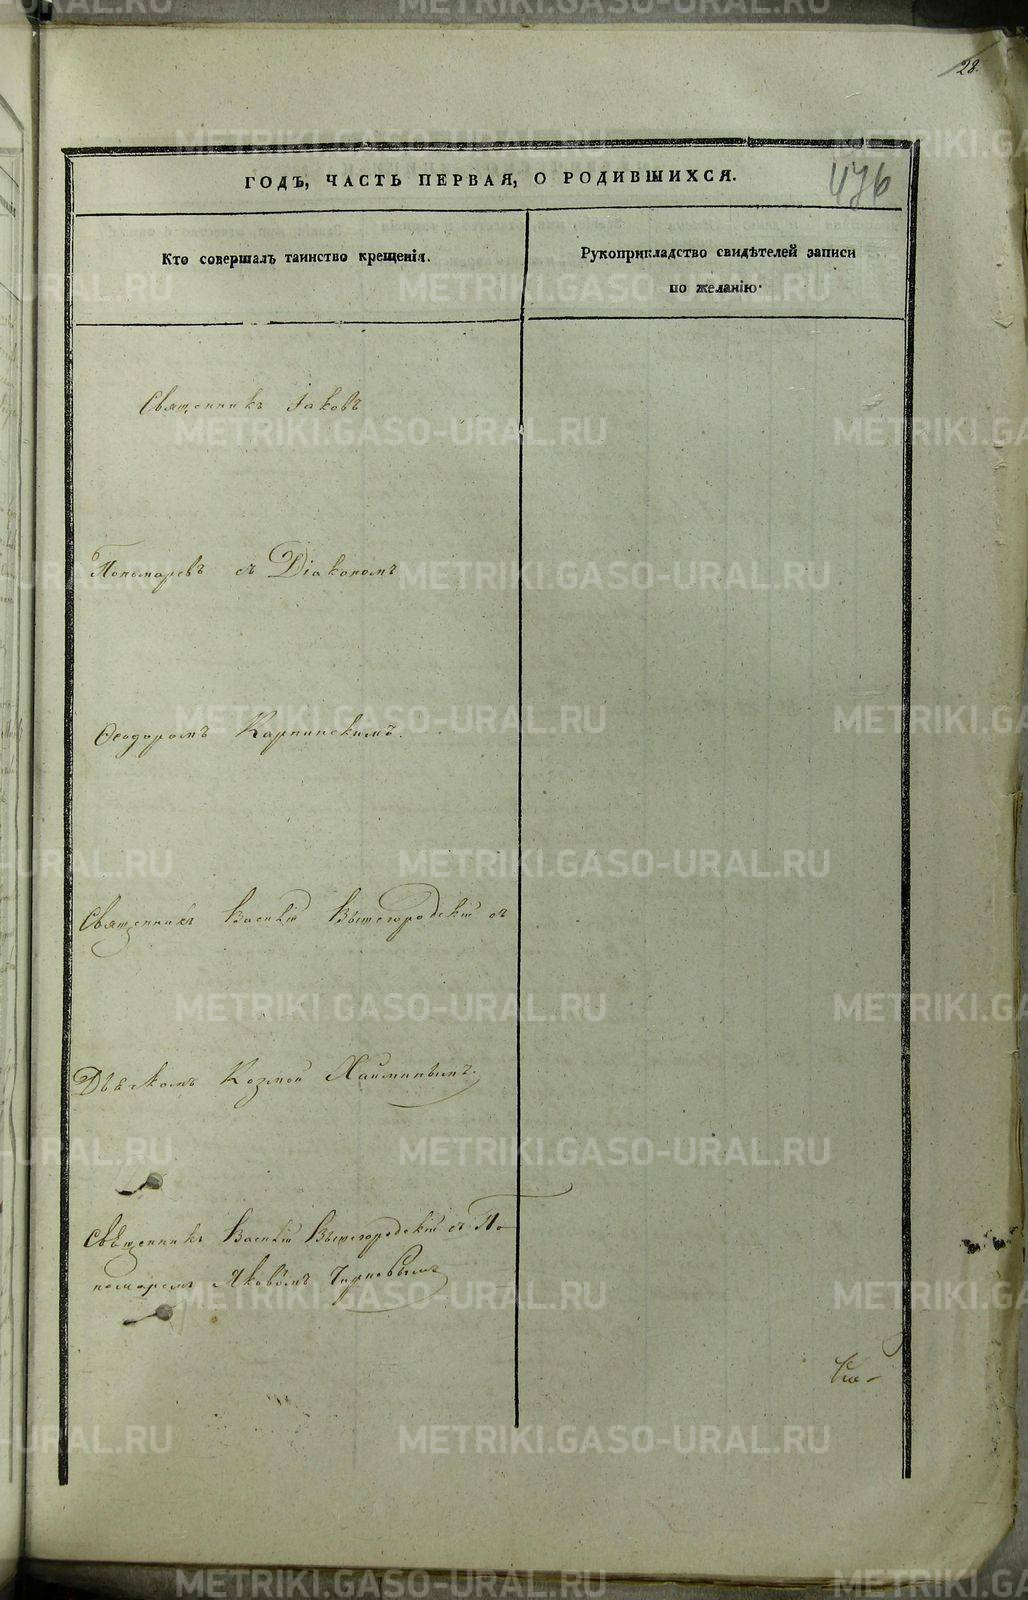 28.
476
ГОДЪ, ЧАСТЬ ПЕРВАЯ, О РОДИВШИХСЯ.
Кто совершалъ таинство крещенія.
Рукоприкладство свидѣтелей записи
по желанію.
Священникъ Іаковъ
Пономаревъ съ Діакономъ
Ѳеодоромъ Карпинскимъ.
Священникъ Василій Вышегородскій съ
Дьячкомъ Козмой
Священникъ Василій Вышегородскій съ По-
номаремъ Яковомъ Чирковымъ
METRIKI.GASO-URAL.RU